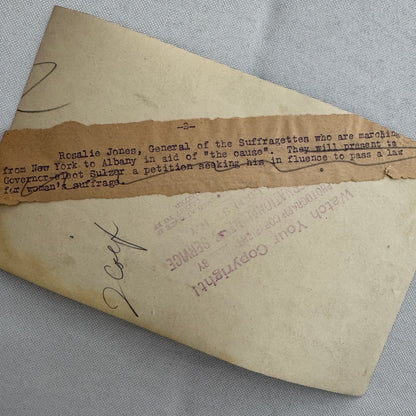 -2-
Rosalie Jones, General of the Suffragettes who are marching
from New York to Albany in aid of "the cause". They will present to
Governor-elect Sulzer a petition seeking his in fluence to pass a law
for woman's suffrage.
Watch Your Copyright!
PHOTOGRAPH
BY
SERVICE